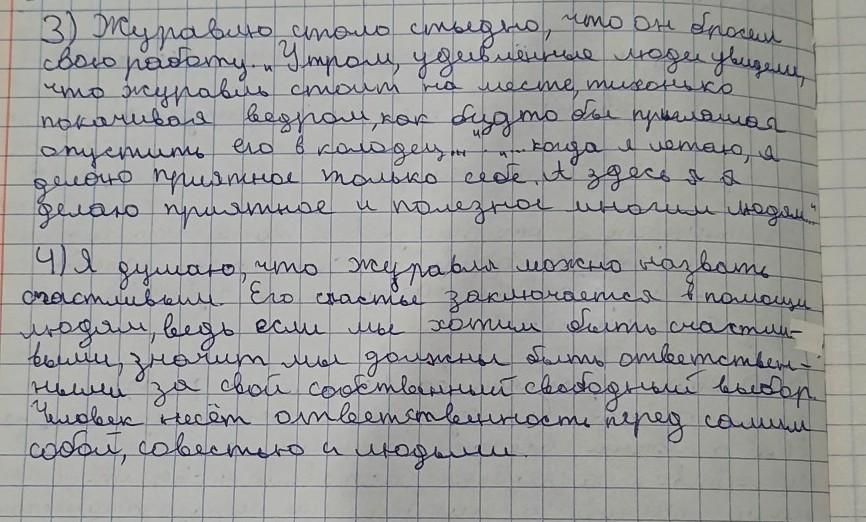 3) Журавлю стало стыдно, что он бросил
свою работу. „Утром, удивлённые люди увидели,
что журавль стоит на месте, тихонько
покачивая ведром, как будто бы приглашая
опустить его в колодец... „... когда я летаю, я
делаю приятное только себе. А здесь я я
делаю приятное и полезное многим людям..."
4) Я думаю, что журавля можно назвать
счастливым. Его счастье заключается в помощи
людям, ведь если мы хотим быть счастли-
выми, значит мы должны быть ответствен-
ными за свой собственный свободный выбор.
Человек несёт ответственность перед самим
собой, совестью и людьми.